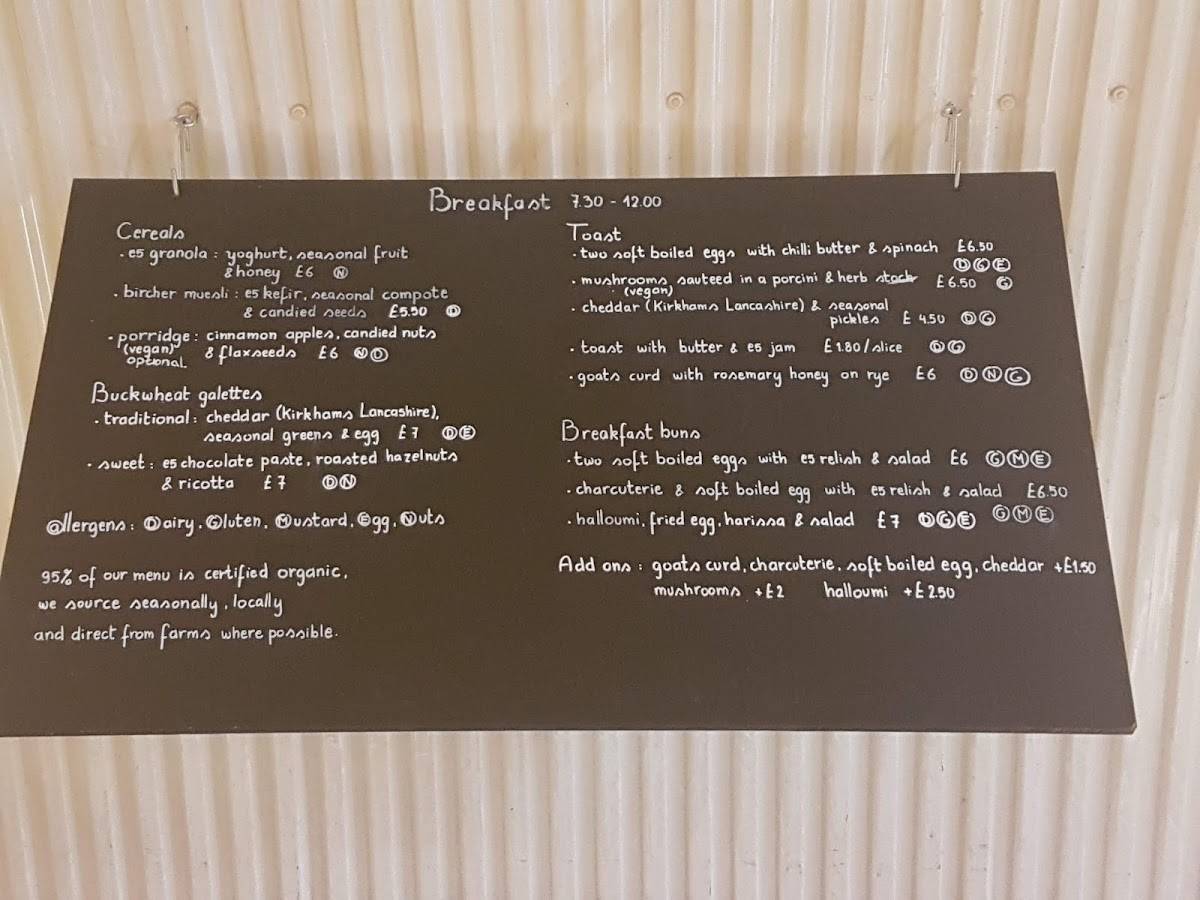 Breakfast 7.30 - 12.00
Cereals
· e5 granola : yoghurt, seasonal fruit
& honey £6 Ⓝ
· bircher muesli : e5 kefir, seasonal compote
& candied seeds £5.50 Ⓓ
· porridge : cinnamon apples, candied nuts
(vegan) & flaxseeds £6 ⓃⒹ
optional
Buckwheat galettes
· traditional : cheddar (Kirkhams Lancashire),
seasonal greens & egg £7 ⒹⒺ
· sweet : e5 chocolate paste, roasted hazelnuts
& ricotta £7 ⒹⓃ
@llergens : Ⓓairy, Ⓖluten, Ⓜustard, Ⓔgg, Ⓝuts
95% of our menu is certified organic,
we source seasonally, locally
and direct from farms where possible.
Toast
· two soft boiled eggs with chilli butter & spinach £6.50
ⒹⒼⒺ
· mushrooms sauteed in a porcini & herb stock £6.50 Ⓖ
(vegan)
· cheddar (Kirkhams Lancashire) & seasonal
pickles £4.50 ⒹⒼ
· toast with butter & e5 jam £1.80/slice ⒹⒼ
· goats curd with rosemary honey on rye £6 ⒹⓃⒼ
Breakfast buns
· two soft boiled eggs with e5 relish & salad £6 ⒼⓂⒺ
· charcuterie & soft boiled egg with e5 relish & salad £6.50
ⒼⓂⒺ
· halloumi, fried egg, harissa & salad £7 ⒹⒼⒺ
Add ons : goats curd, charcuterie, soft boiled egg, cheddar +£1.50
mushrooms +£2 halloumi +£2.50